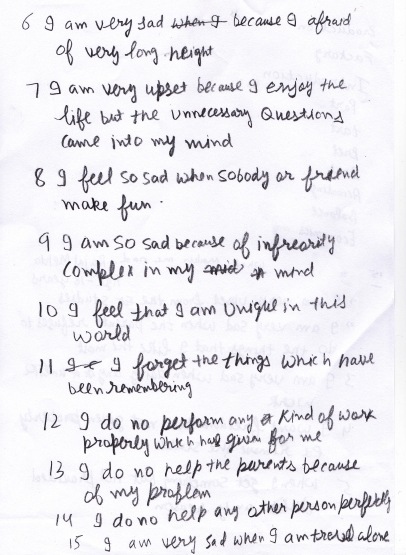 6 I am very sad when I because I afraid
of very long height
7 I am very upset because I enjoy the
life but the unnecessary Questions
came into my mind
8 I feel so sad when sobody or friend
make fun.
9 I am so sad because of infrearity
complex in my mid mind
10 I feel that I am unique in this
world
11 I forget the things which have
been remembering
12 I do no perform any kind of work
properly which have given for me
13 I do no help the parents because
of my problem
14 I do no help any other person perfectly
15 I am very sad when I am alone